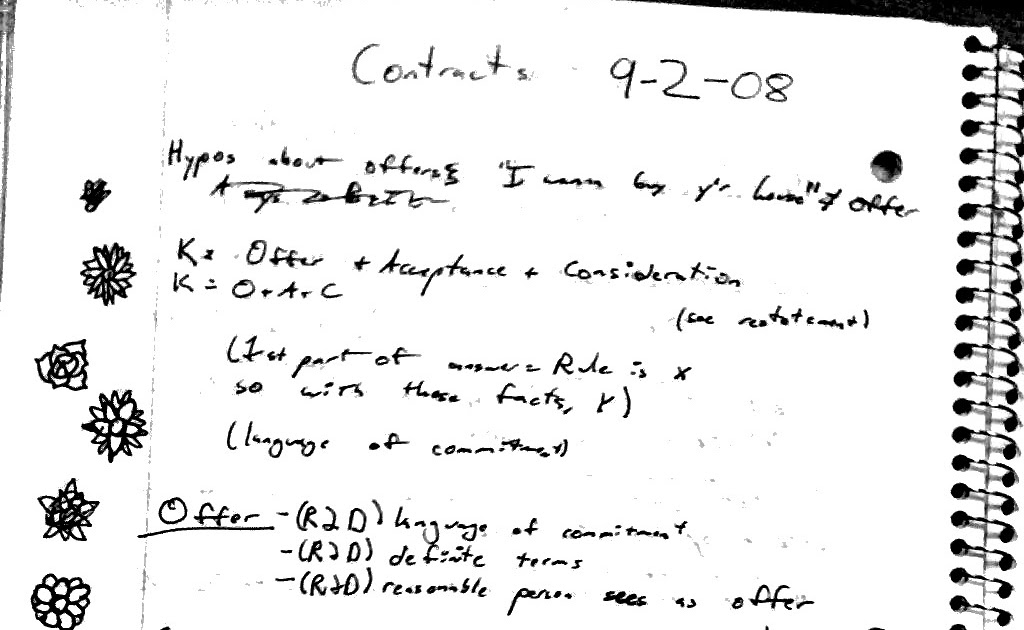 Contracts 9-2-08
Hypos about offers "I wanna buy y'r house" ≠ offer
K = Offer + Acceptance + Consideration
K = O+A+C
(see restatement)
(1st part of answer = Rule is x
so with those facts, Y)
(language of commitment)
Offer - (R2D) language of commitment
- (R2D) definite terms
- (R2D) reasonable person sees as offer